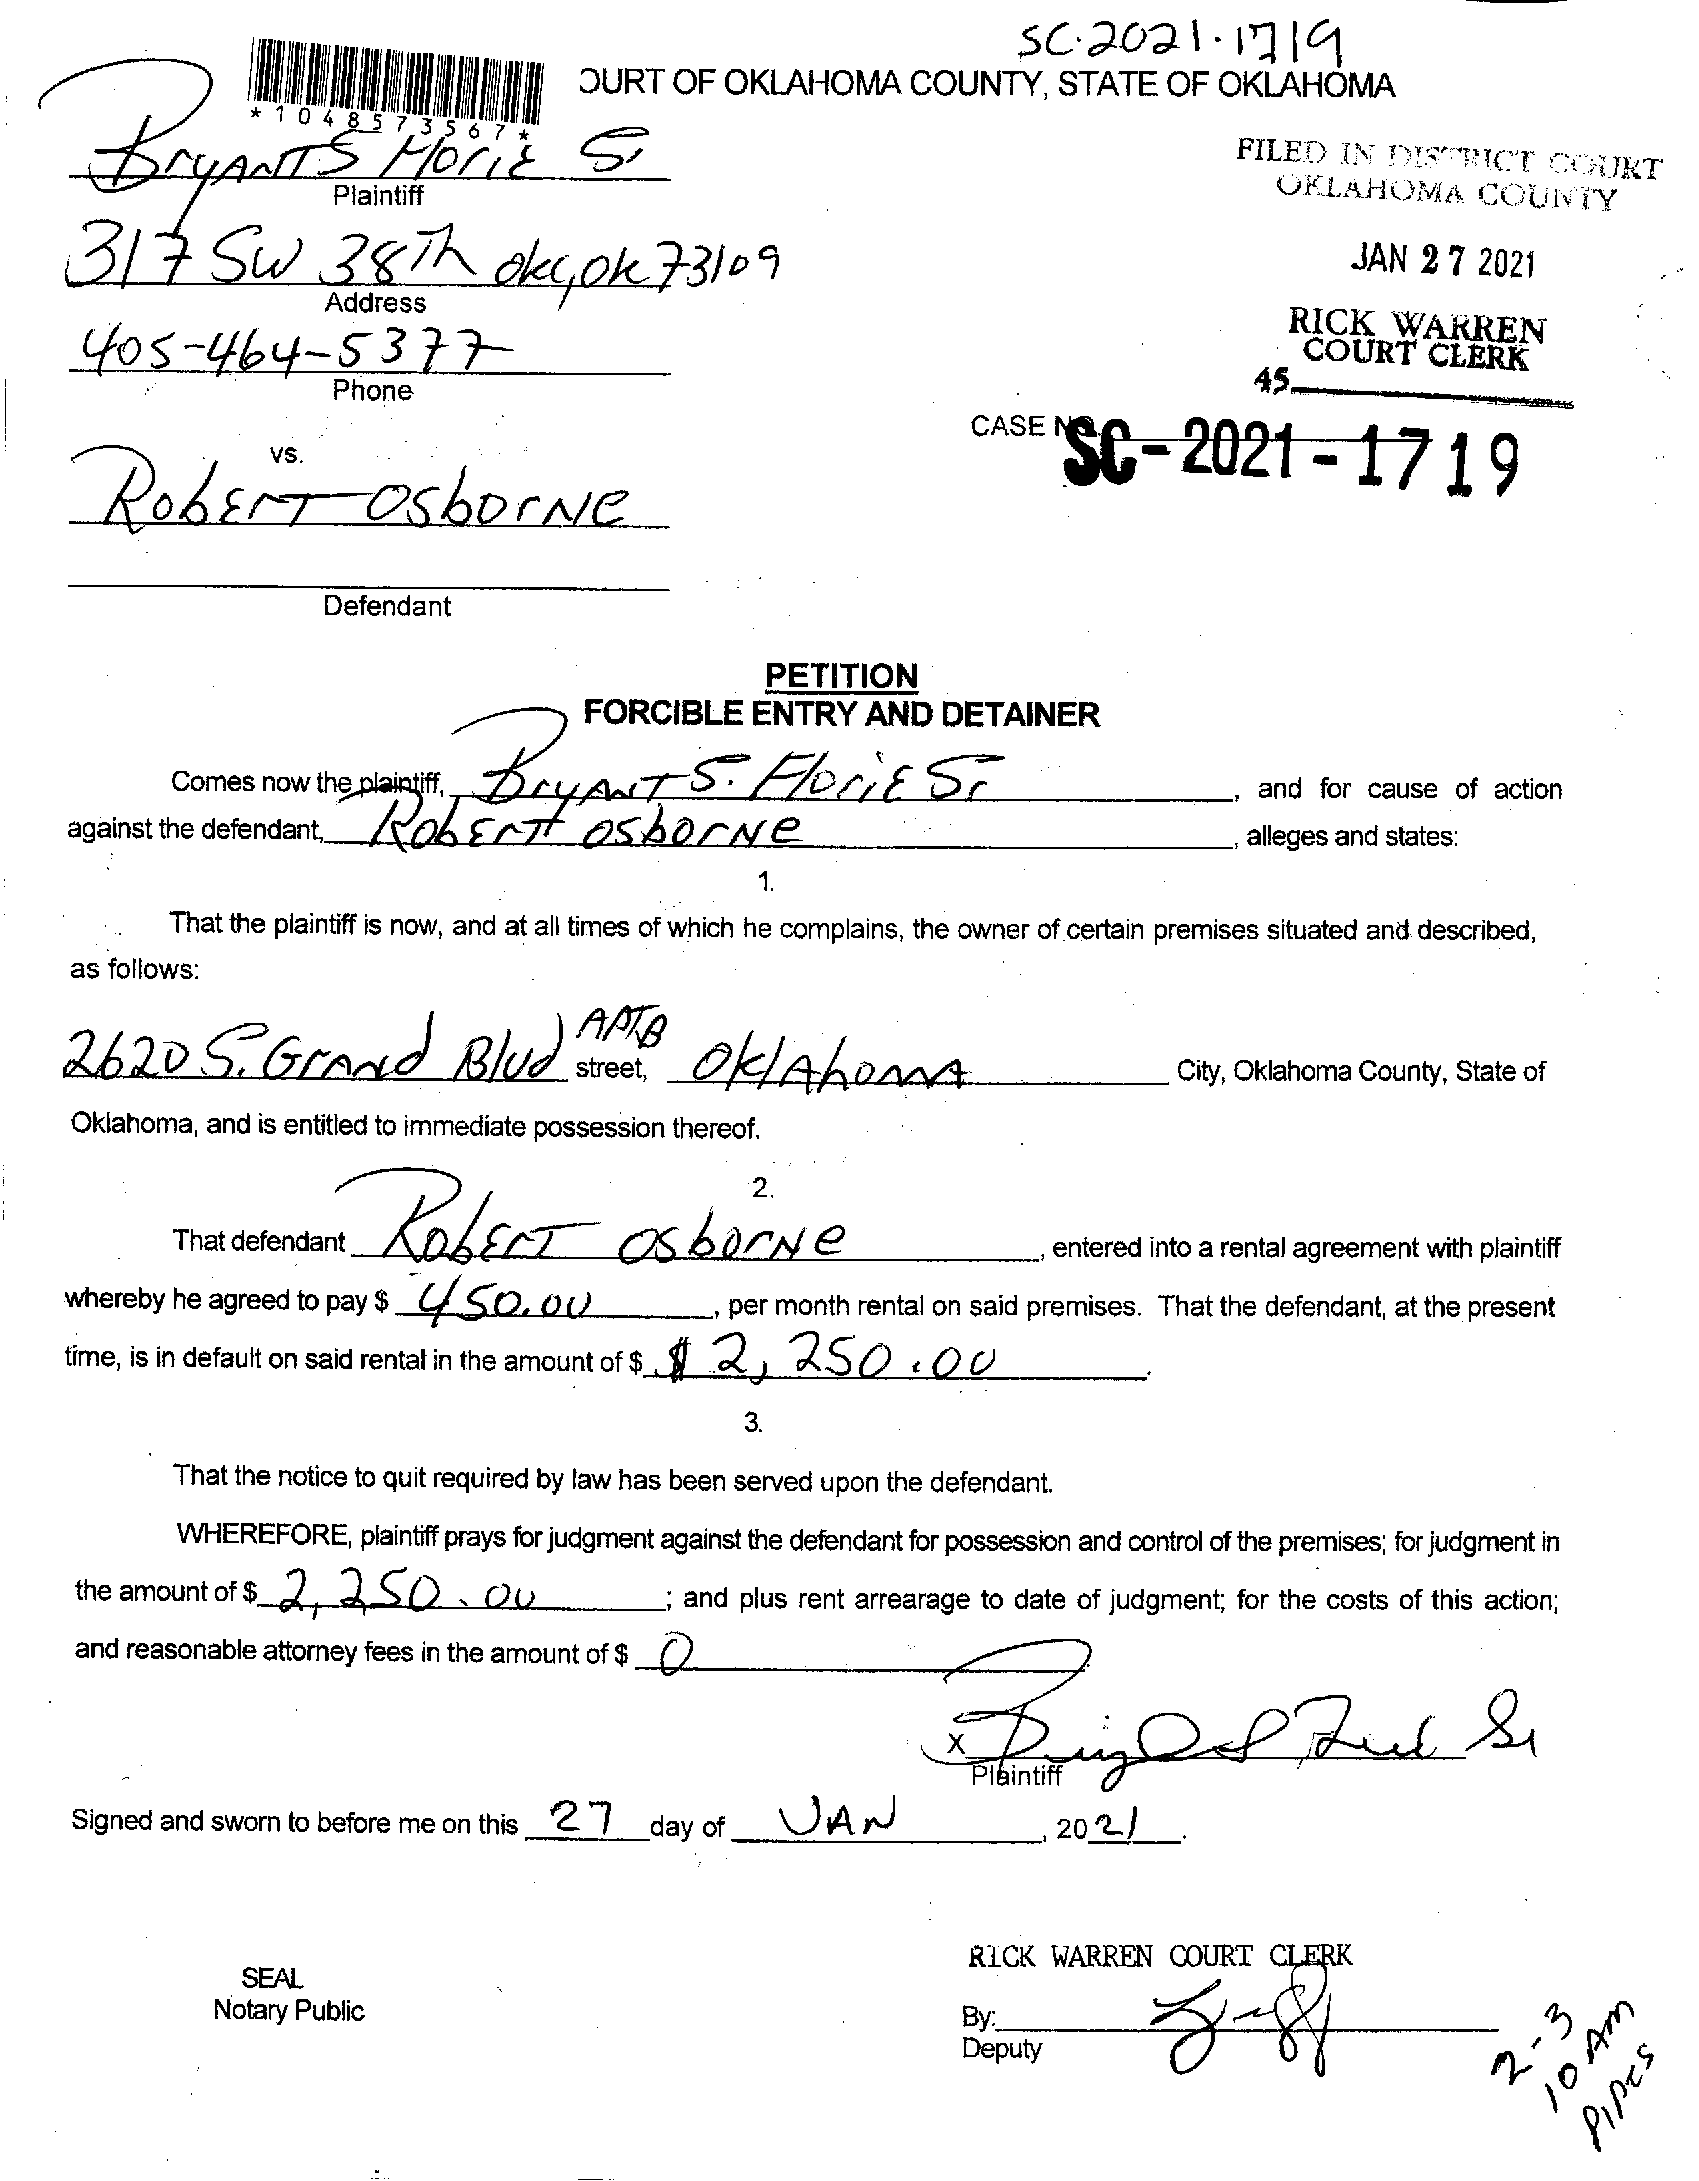 SC-2021-1719
OURT OF OKLAHOMA COUNTY, STATE OF OKLAHOMA
*1048573567*
BryANT S Florie Sr
Plaintiff
FILED IN DISTRICT COURT
OKLAHOMA COUNTY
317 SW 38Th okc, ok 73109
Address
JAN 27 2021
405-464-5377
Phone
RICK WARREN
COURT CLERK
45
CASE NO.
SC-2021-1719
vs.
RobErT OsborNe
Defendant
PETITION
FORCIBLE ENTRY AND DETAINER
Comes now the plaintiff, BryANT S. FloriE Sr, and for cause of action
against the defendant, RobErT OsborNe, alleges and states:
1.
That the plaintiff is now, and at all times of which he complains, the owner of certain premises situated and described,
as follows:
2620 S. GrANd Blvd APT B street, OklAhomA City, Oklahoma County, State of
Oklahoma, and is entitled to immediate possession thereof.
2.
That defendant RobErT OsborNe, entered into a rental agreement with plaintiff
whereby he agreed to pay $ 450.00, per month rental on said premises. That the defendant, at the present
time, is in default on said rental in the amount of $ $ 2,250.00.
3.
That the notice to quit required by law has been served upon the defendant.
WHEREFORE, plaintiff prays for judgment against the defendant for possession and control of the premises; for judgment in
the amount of $ 2,250.00; and plus rent arrearage to date of judgment; for the costs of this action;
and reasonable attorney fees in the amount of $ 0
X
Plaintiff
Signed and sworn to before me on this 27 day of JAN, 2021.
RICK WARREN COURT CLERK
SEAL
Notary Public
By:
Deputy
2-3
10 AM